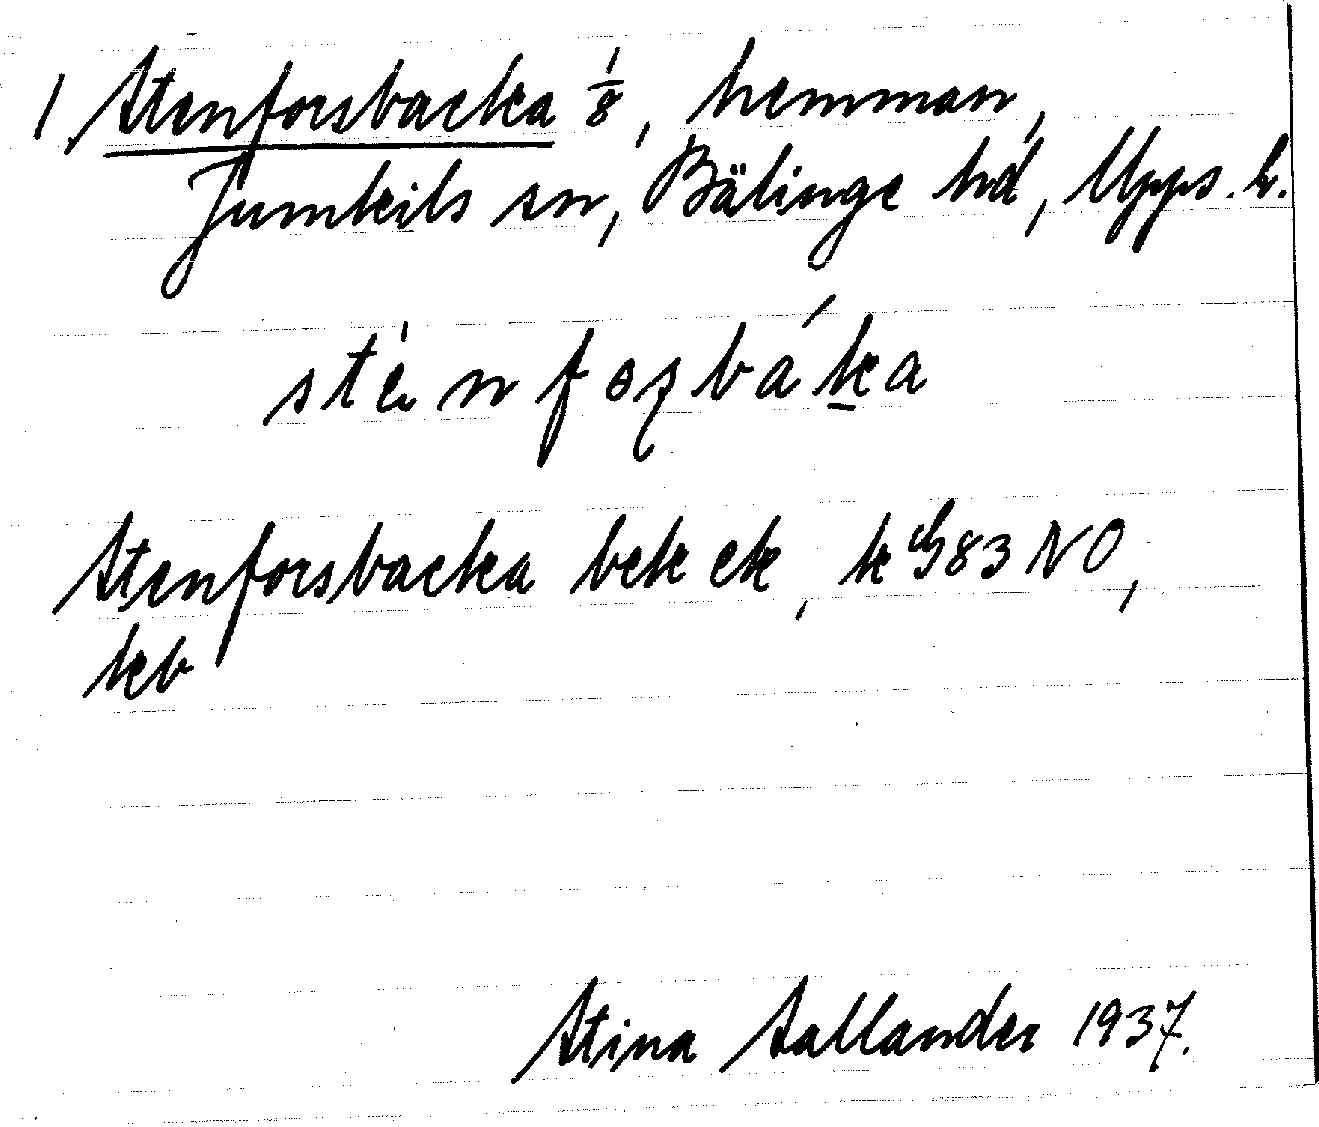 1, Stenforsbacka 1/8, hemman,
Jumkils sn, Bälinge hd, Upps. l.
sté̀nfoʂbáka
Stenforsbacka bek ek, k G 83 NO,
keb
Stina Sallander 1937.